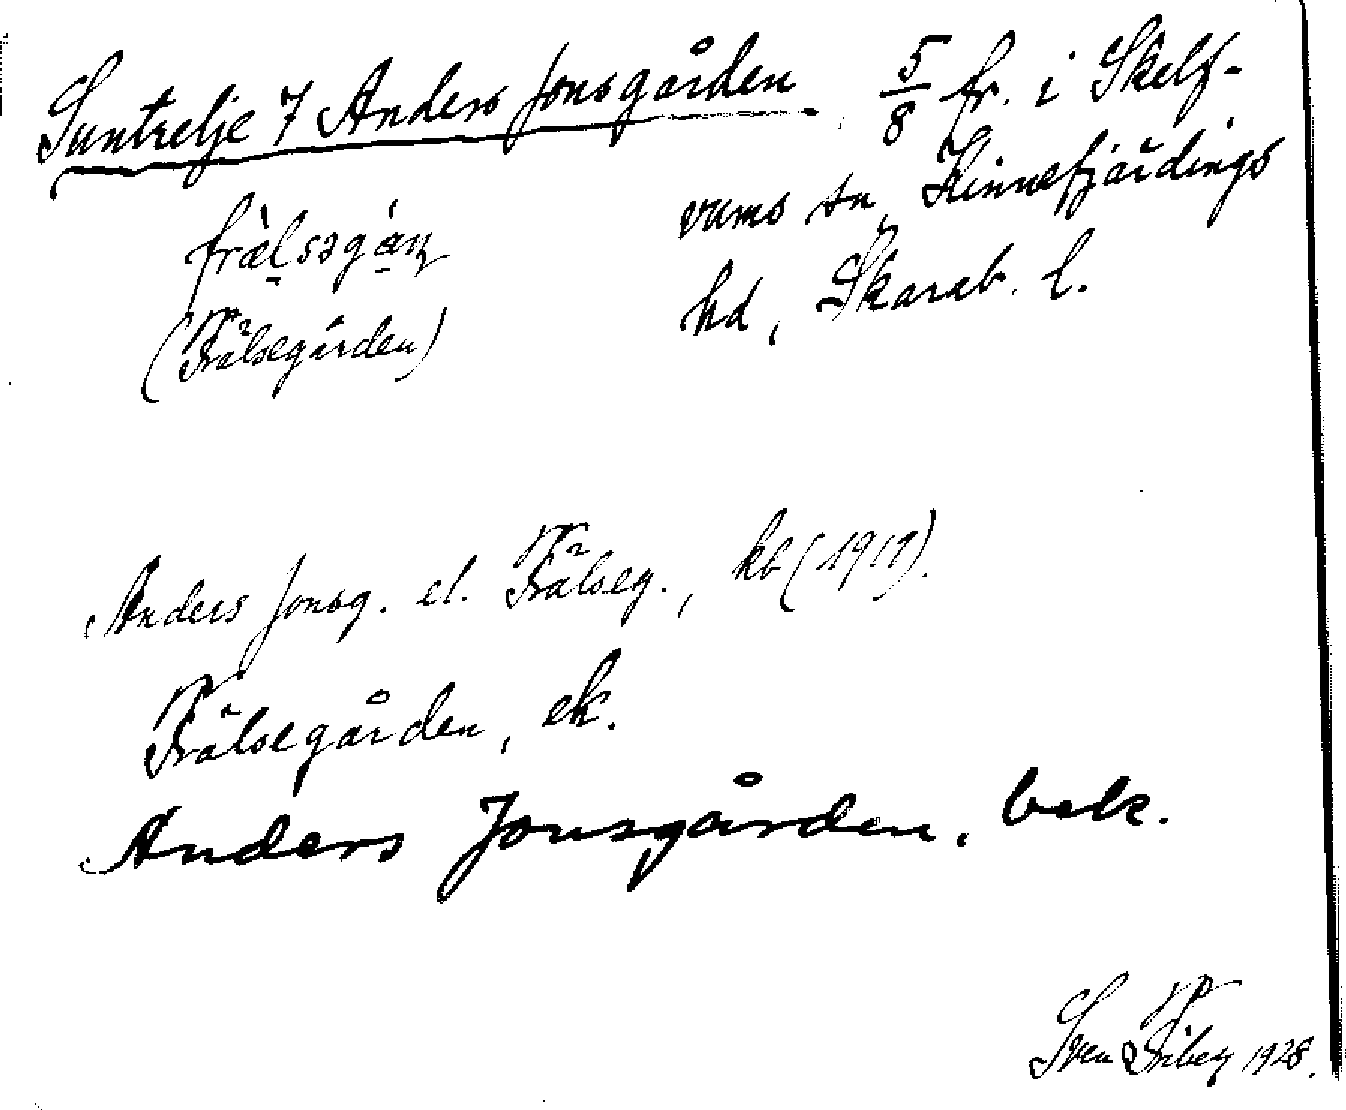 Suntrelje 7 Anders Jonsgården. 5/8 fr. i Skelf-
vums sn, Kinnefjärdings
hd, Skarab. l.
frælsəgán
(Frälsegården)
Anders Jonsg. el. Frälseg., kb (1911).
Frälsegården, ek.
Anders Jonsgården, bek.
Sven 1928.